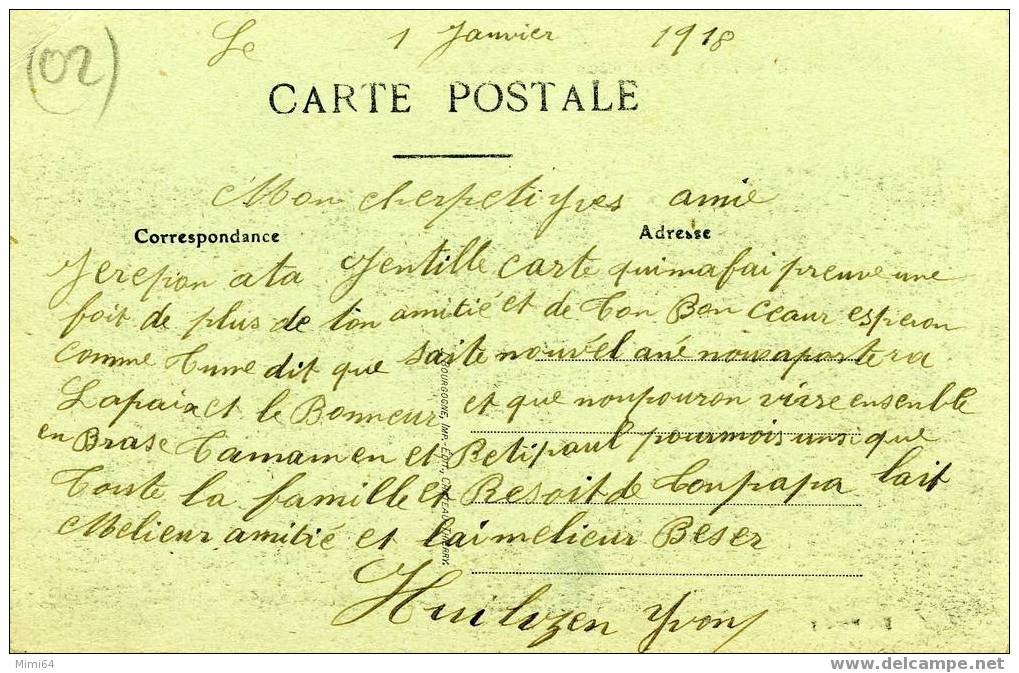 (02)
Le 1 Janvier 1918
CARTE POSTALE
Mon cherpeti Yves amie
Correspondance
Adresse
Jerepon ata Jentille carte quimafai preuve une
foit de plus de ton amitié et de Ton Bon Ceaur esperon
comme Tume dit que saite nouvel ané nousaportera
Lapaix et le Bonneur et que noupouron vivre ensenble
en Brase Tamamen et Petipaul pourmois unsi que
Toute la famille et Resoit de Tonpapa lait
Melieur amitié et laimelieur Beser
Yvon
BOURGOGNE, IMP.-EDIT., CHATEAU-THIERRY.
Mimi64
www.delcampe.net